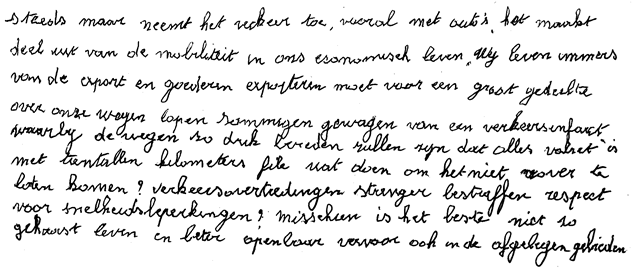 steeds maar neemt het verkeer toe, vooral met auto's, het maakt
deel uit van de mobiliteit in ons economisch leven, wij leven immers
van de export en goederen exporteren moet voor een groot gedeelte
over onze wegen lopen sommigen gewagen van een verkeersinfarct
waarbij de wegen so druk bereden zullen zijn dat alles vastzit is
met tientallen kilometers file wat doen om het niet zover te
laten komen? verkeersovertredingen strenger bestraffen respect
voor snelheidsbeperkingen? misschien is het beste niet zo
gehaast leven en beter openbaar vervoer ook in de afgelegen gebieden